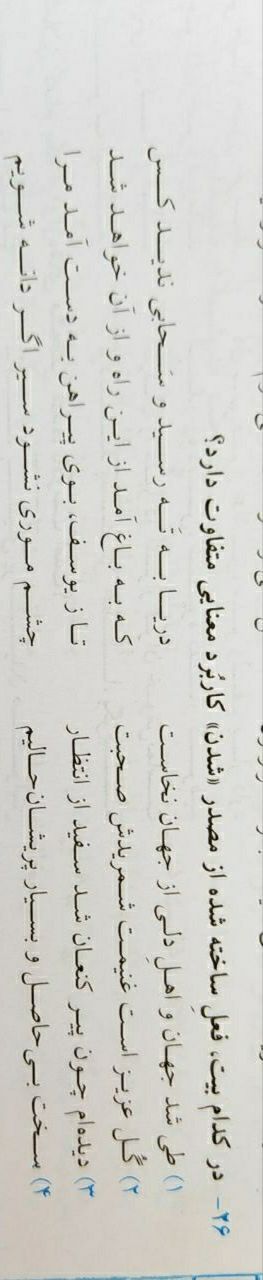 ۲۶- در کدام بیت، فعلِ ساخته شده از مصدر «شدن» کاربُرد معنایی متفاوت دارد؟
۱) طی شد جهان و اهلِ دلی از جهان نخاست دریا به ته رسید و سَحابی ندید کس
۲) گُل عزیز است غنیمت شمریدش صحبت که به باغ آمد از این راه و از آن خواهد شد
۳) دیده‌ام چون پیر کنعان شد سفید از انتظار تا ز یوسف، بوی پیراهن به دست آمد مرا
۴) سخت بی حاصل و بسیار پریشان‌حالیم چشم موری نشود سیر اگر دانه شویم